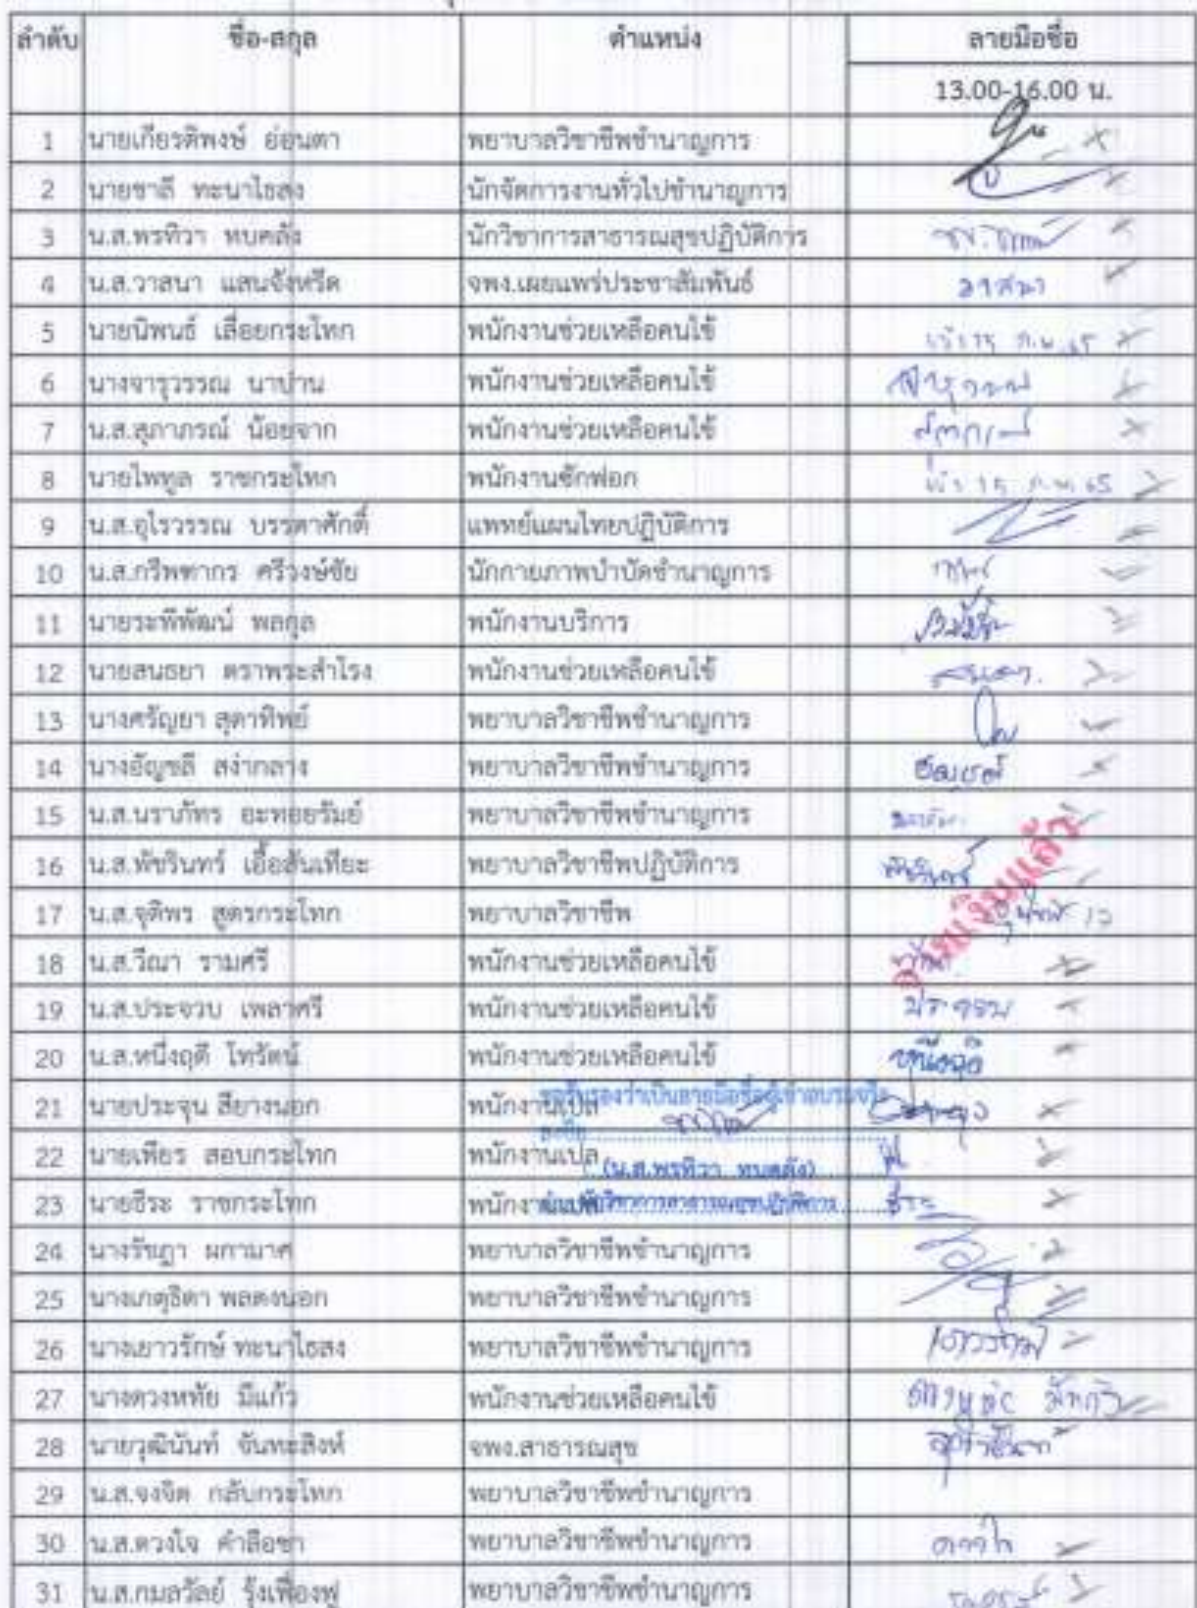 ลำดับ ชื่อ-สกุล ตำแหน่ง ลายมือชื่อ
13.00-16.00 น.
1 นายเกียรติพงษ์ ย่อนตา พยาบาลวิชาชีพชำนาญการ
2 นายชาลี ทะนาไธสง นักจัดการงานทั่วไปชำนาญการ
3 น.ส.พรทิวา ทบคลัง นักวิชาการสาธารณสุขปฏิบัติการ
4 น.ส.วาสนา แสนจังหรีด จพง.เผยแพร่ประชาสัมพันธ์ วาสนา
5 นายนิพนธ์ เลื่อยกระโทก พนักงานช่วยเหลือคนไข้
6 นางจารุวรรณ นาปาน พนักงานช่วยเหลือคนไข้ จารุวรรณ
7 น.ส.สุภาภรณ์ น้อยจาก พนักงานช่วยเหลือคนไข้
8 นายไพทูล ราชกระโทก พนักงานซักฟอก
9 น.ส.อุไรวรรณ บรรดาศักดิ์ แพทย์แผนไทยปฏิบัติการ
10 น.ส.กรีพฑากร ศรีวงษ์ชัย นักกายภาพบำบัดชำนาญการ
11 นายระพีพัฒน์ พลกุล พนักงานบริการ
12 นายสนธยา ตราพระสำโรง พนักงานช่วยเหลือคนไข้
13 นางศรัญยา สุดาทิพย์ พยาบาลวิชาชีพชำนาญการ
14 นางอัญชลี สง่ากลาง พยาบาลวิชาชีพชำนาญการ
15 น.ส.นราภัทร อะทอยรัมย์ พยาบาลวิชาชีพชำนาญการ
16 น.ส.พัชรินทร์ เอื้อสันเทียะ พยาบาลวิชาชีพปฏิบัติการ
17 น.ส.จุติพร สูตรกระโทก พยาบาลวิชาชีพ
จ่ายเงินแล้ว
18 น.ส.วีณา รามศรี พนักงานช่วยเหลือคนไข้
19 น.ส.ประจวบ เพลาศรี พนักงานช่วยเหลือคนไข้ ประจวบ
20 น.ส.หนึ่งฤดี โทรัตน์ พนักงานช่วยเหลือคนไข้ หนึ่งฤดี
21 นายประจุน สียางนอก พนักงานเปล
ขอรับรองว่าเป็นลายมือชื่อผู้เข้าอบรมจริง
ลงชื่อ
22 นายเพียร สอบกระโทก พนักงานเปล
(น.ส.พรทิวา ทบคลัง)
23 นายธีระ ราชกระโทก พนักงานเปล ธีระ
นักวิชาการสาธารณสุขปฏิบัติการ
24 นางรัชฎา ผกามาศ พยาบาลวิชาชีพชำนาญการ
25 นางเกตุธิดา พลดงนอก พยาบาลวิชาชีพชำนาญการ
26 นางเยาวรักษ์ ทะนาไธสง พยาบาลวิชาชีพชำนาญการ
27 นางดวงหทัย มีแก้ว พนักงานช่วยเหลือคนไข้
28 นายวุฒินันท์ จันทะสิงห์ จพง.สาธารณสุข
29 น.ส.จงจิต กลับกระโทก พยาบาลวิชาชีพชำนาญการ
30 น.ส.ดวงใจ คำลือชา พยาบาลวิชาชีพชำนาญการ
31 น.ส.กมลวัลย์ รุ้งเฟื่องฟู พยาบาลวิชาชีพชำนาญการ